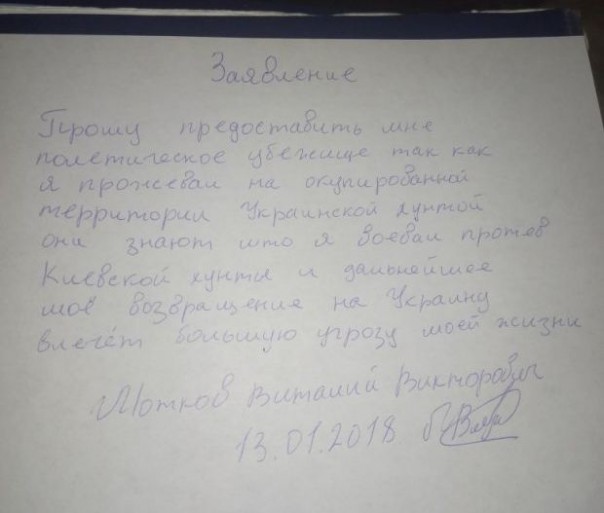 Заявление
Прошу предоставить мне
политическое убежище так как
я прожевал на окупированной
территории Украинской хунтой
они знают што я воевал против
Киевской хунты и дальнейшее
моё возвращение на Украину
влечёт большую угрозу моей жизни
Виталий Викторович
13.01.2018